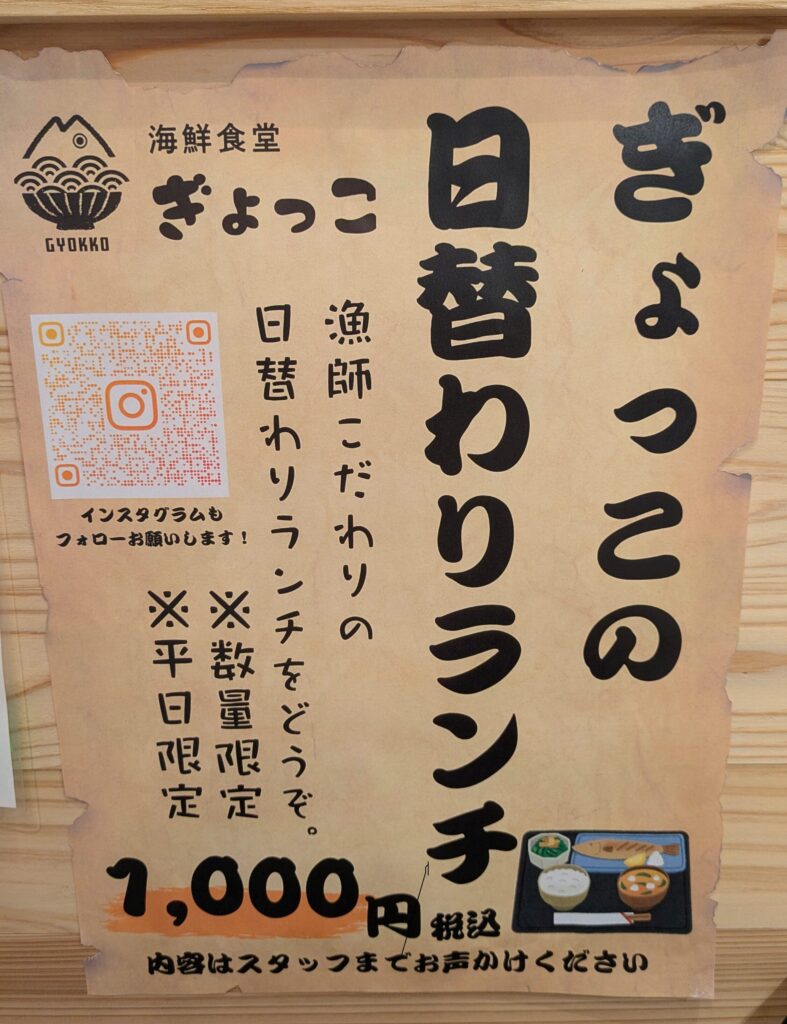 海鮮食堂
ぎょっこ
GYOKKO
ぎょっこの
日替わりランチ
漁師こだわりの
日替わりランチをどうぞ。
※数量限定
※平日限定
インスタグラムも
フォローお願いします！
1,000円税込
内容はスタッフまでお声かけください